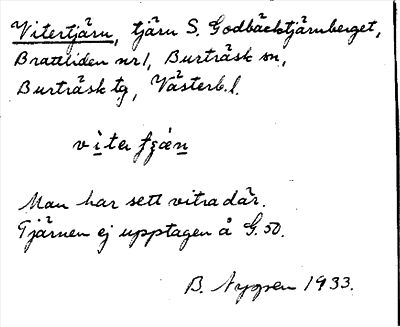 Vitertjärn, tjärn S. Godbäcktjärnberget,
Brattliden nr 1, Burträsk sn,
Burträsk tg, Västerb. l.
vi̲te̲r ʃǥæn̲
Man har sett vitra där.
Tjärnen ej upptagen å G. 50.
B. Nygren 1933.